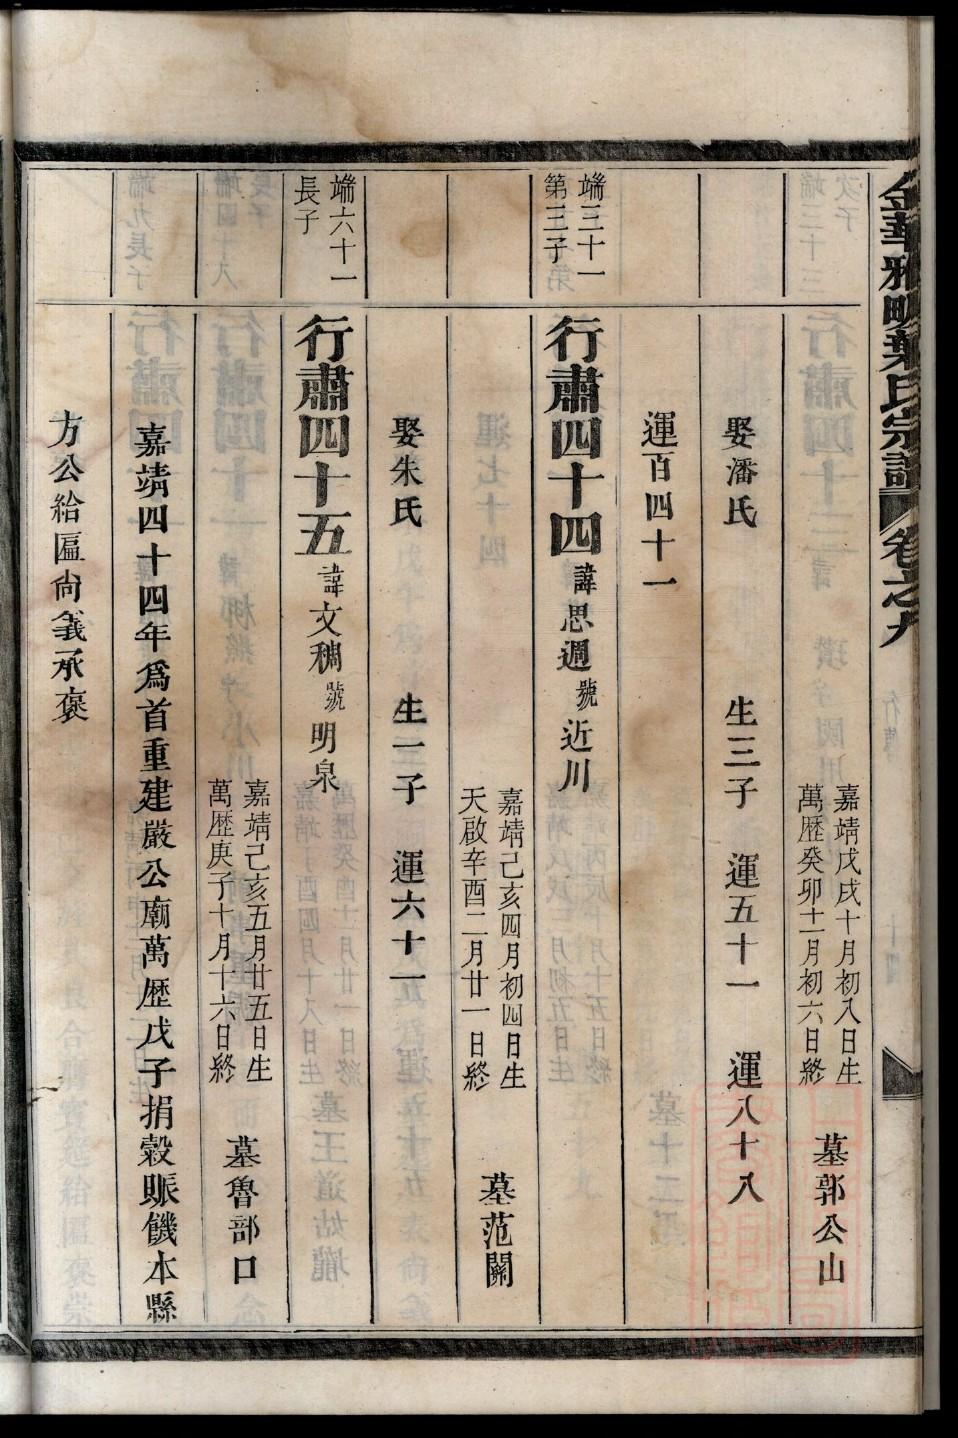 金華雅畈葉氏宗譜 卷之九
嘉靖戊戌十月初八日生
萬歷癸卯十一月初六日終
墓郭公山
娶潘氏 生三子 運五十一 運八十八
運百四十一
端三十一
第三子
行肅四十四 諱思週 號近川
嘉靖己亥四月初四日生
天啟辛酉二月廿一日終
墓范關
娶朱氏 生一子 運六十一
端六十一
長子
行肅四十五 諱文稠 號明泉
嘉靖己亥五月廿五日生
萬歷庚子十月十六日終
墓魯部口
嘉靖四十四年爲首重建嚴公廟萬歷戊子捐穀賑饑本縣
方公給匾尙義承褒